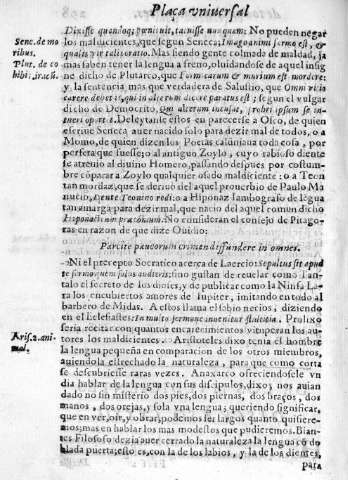 Plaça vniuersal
Dixisse quandoq; pœnituit, tacuisse nunquam: No pueden negar
los maldicientes, que segun Seneca; Imago animi sermo est, &
qualis vir talis oratio. Mas siendo gente colmada de maldad, ja
mas saben tener la lengua a freno, oluidandose de aquel insig
ne dicho de Plutarco, que
y la sentencia mas que verdadera de Salustio, que Omni vitio
carere debet is, qui in alterum dicere paratus est; y segun el vulgar
dicho de Democrito, Qui alterum incusat, probri ipsum se in
tueri oportet. Deleytanse estos en parecerse a Olco, de quien
escriue Seneca auer nacido solo para dezir mal de todos, o a
Momo, de quien dizen los Poetas calũniaua toda cosa, por
perfeta que fuesse; o al antiguo Zoylo, cuyo rabioso diente
se atreuio al diuino Homero, passando despues por costum
bre cõparar a Zoylo qualquier osado maldiciente: o a Teon
tan mordaz, que se deriuò del aquel prouerbio de Paulo Ma
nucio, Dente Teonino rodi: o a Hiponaz Iambografo de lẽgua
tan amarga para dezir mal, que nacio del aquel comun dicho
Hiponacticum præconium. No consideran el consejo de Pitago
ras en razon de que dize Ouidio:
Parcite paucorum crimen diffundere in omnes.
Ni el precepto Socratico acerca de Laercio: Sepultus sit apud
te sermo, quem solus audieris; sino gustan de reuelar como Tan
talo el secreto de los dioses, y de publicar como la Ninfa La
ra los encubiertos amores de Iupiter, imitando en todo al
barbero de Midas. A estos llama el sabio necios, diziendo
en el Eclesiastes: In multo sermone inuenitur stultitia. Prolixo
seria recitar con quantos encarecimientos vituperan los au
tores los maldicientes. Aristoteles dixo tenia el hombre
la lengua pequeña en comparacion de los otros miembros,
auiendola estrechado la naturaleza, para que como corta
se descubriesse raras vezes. Anaxarco ofreciendosele vn
dia hablar de la lengua con sus discipulos, dixo; nos auian
dado no sin misterio dos pies, dos piernas, dos braços, dos
manos, dos orejas, y sola vna lengua; queriendo significar,
que en ver, oir, y obrar, podemos ser largos quanto quisiere
mos; mas en hablar los mas modestos que pudieremos. Bian
tes Filosofo dezia auer cerrado la naturaleza la lengua cõ do
blada puerta; esto es, con la de los labios, y la de los dientes,
para
Senc. de mo
ribus.
Plut. de co
hibi. iracũ.
Aris. 2. ani
mal.